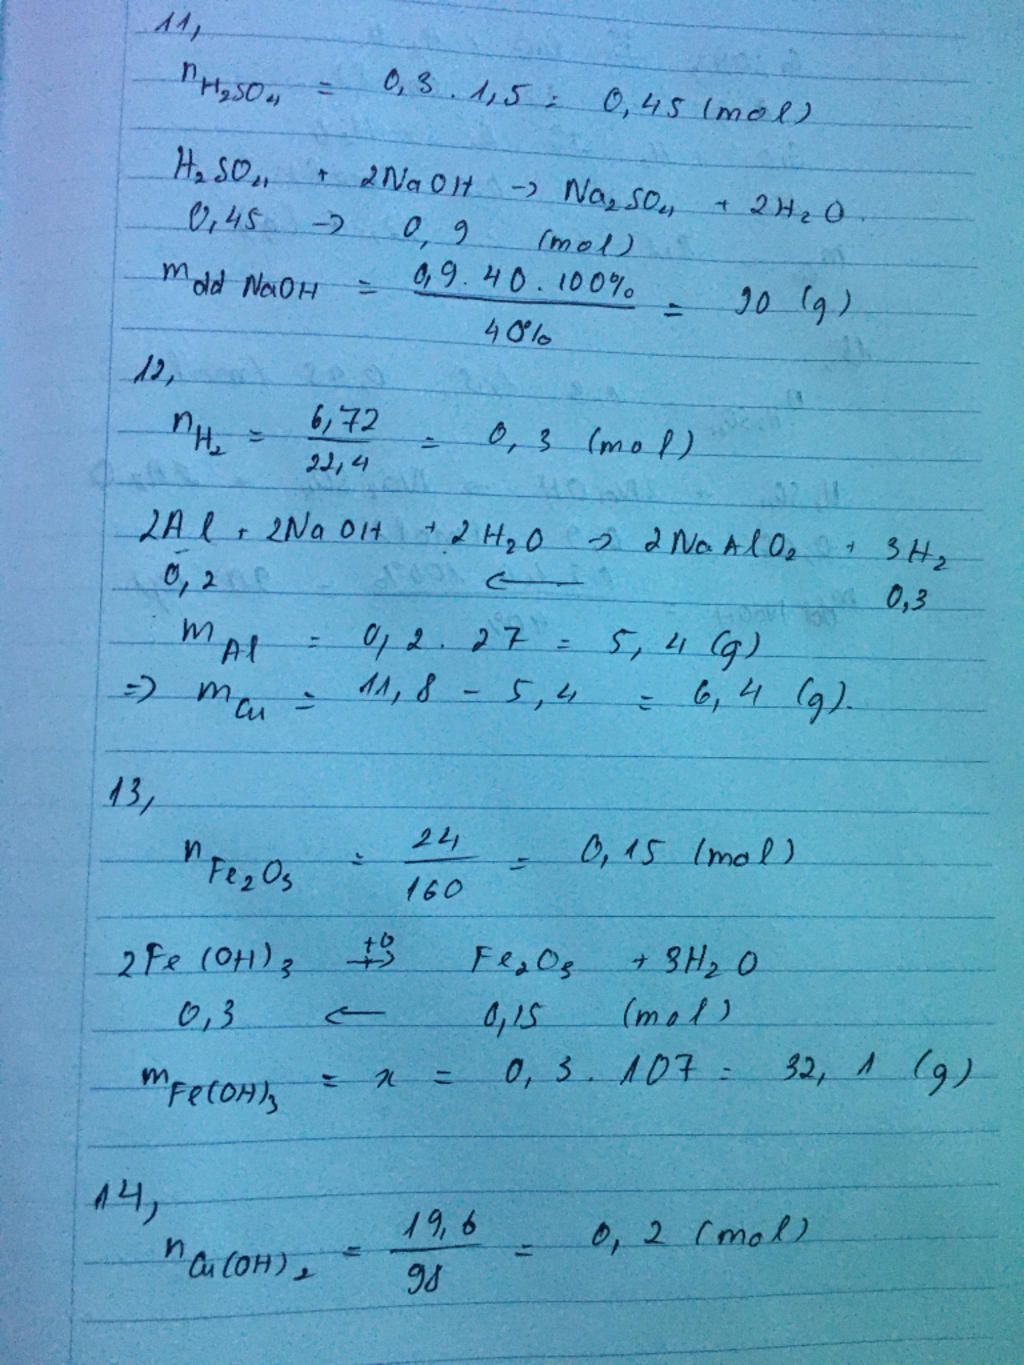 11,
nH₂SO₄ = 0,3 . 1,5 = 0,45 (mol)
H₂SO₄ + 2NaOH → Na₂SO₄ + 2H₂O
0,45 → 0,9 (mol)
mdd NaOH = 0,9 . 40 . 100% / 40% = 90 (g)
12,
nH₂ = 6,72 / 22,4 = 0,3 (mol)
2Al + 2NaOH + 2H₂O → 2NaAlO₂ + 3H₂
0,2 ← 0,3
mAl = 0,2 . 27 = 5,4 (g)
=> mCu = 11,8 - 5,4 = 6,4 (g).
13,
nFe₂O₃ = 24 / 160 = 0,15 (mol)
2Fe(OH)₃ →(t⁰) Fe₂O₃ + 3H₂O
0,3 ← 0,15 (mol)
mFe(OH)₃ = x = 0,3 . 107 = 32,1 (g)
14,
nCu(OH)₂ = 19,6 / 98 = 0,2 (mol)